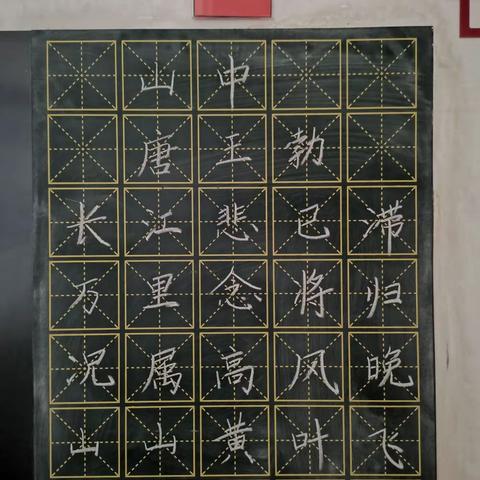 山中
唐王勃
长江悲已滞
万里念将归
况属高风晚
山山黄叶飞